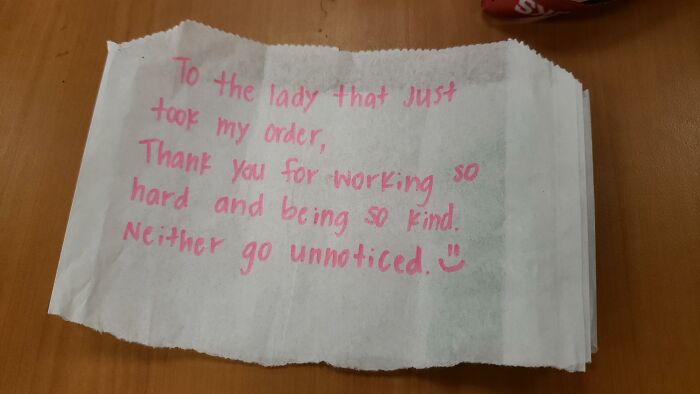 To the lady that just
took my order,
Thank you for working so
hard and being so kind.
Neither go unnoticed.